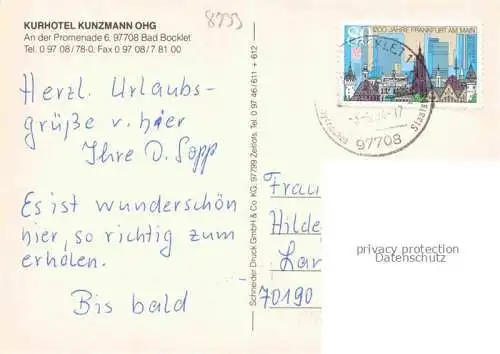 KURHOTEL KUNZMANN OHG
An der Promenade 6, 97708 Bad Bocklet
Tel. 0 97 08/78-0, Fax 0 97 08/7 81 00
Herzl. Urlaubs-
grüße v. hier
Ihre D. Popp
Es ist wunderschön
hier, so richtig zum
erholen.
Bis bald
Schneider Druck GmbH & Co KG, 97799 Zeitlofs, Tel. 0 97 46/611 + 612
1200 JAHRE FRANKFURT AM MAIN
97708
Frau
Hilde
Lar
70190
privacy protection
Datenschutz